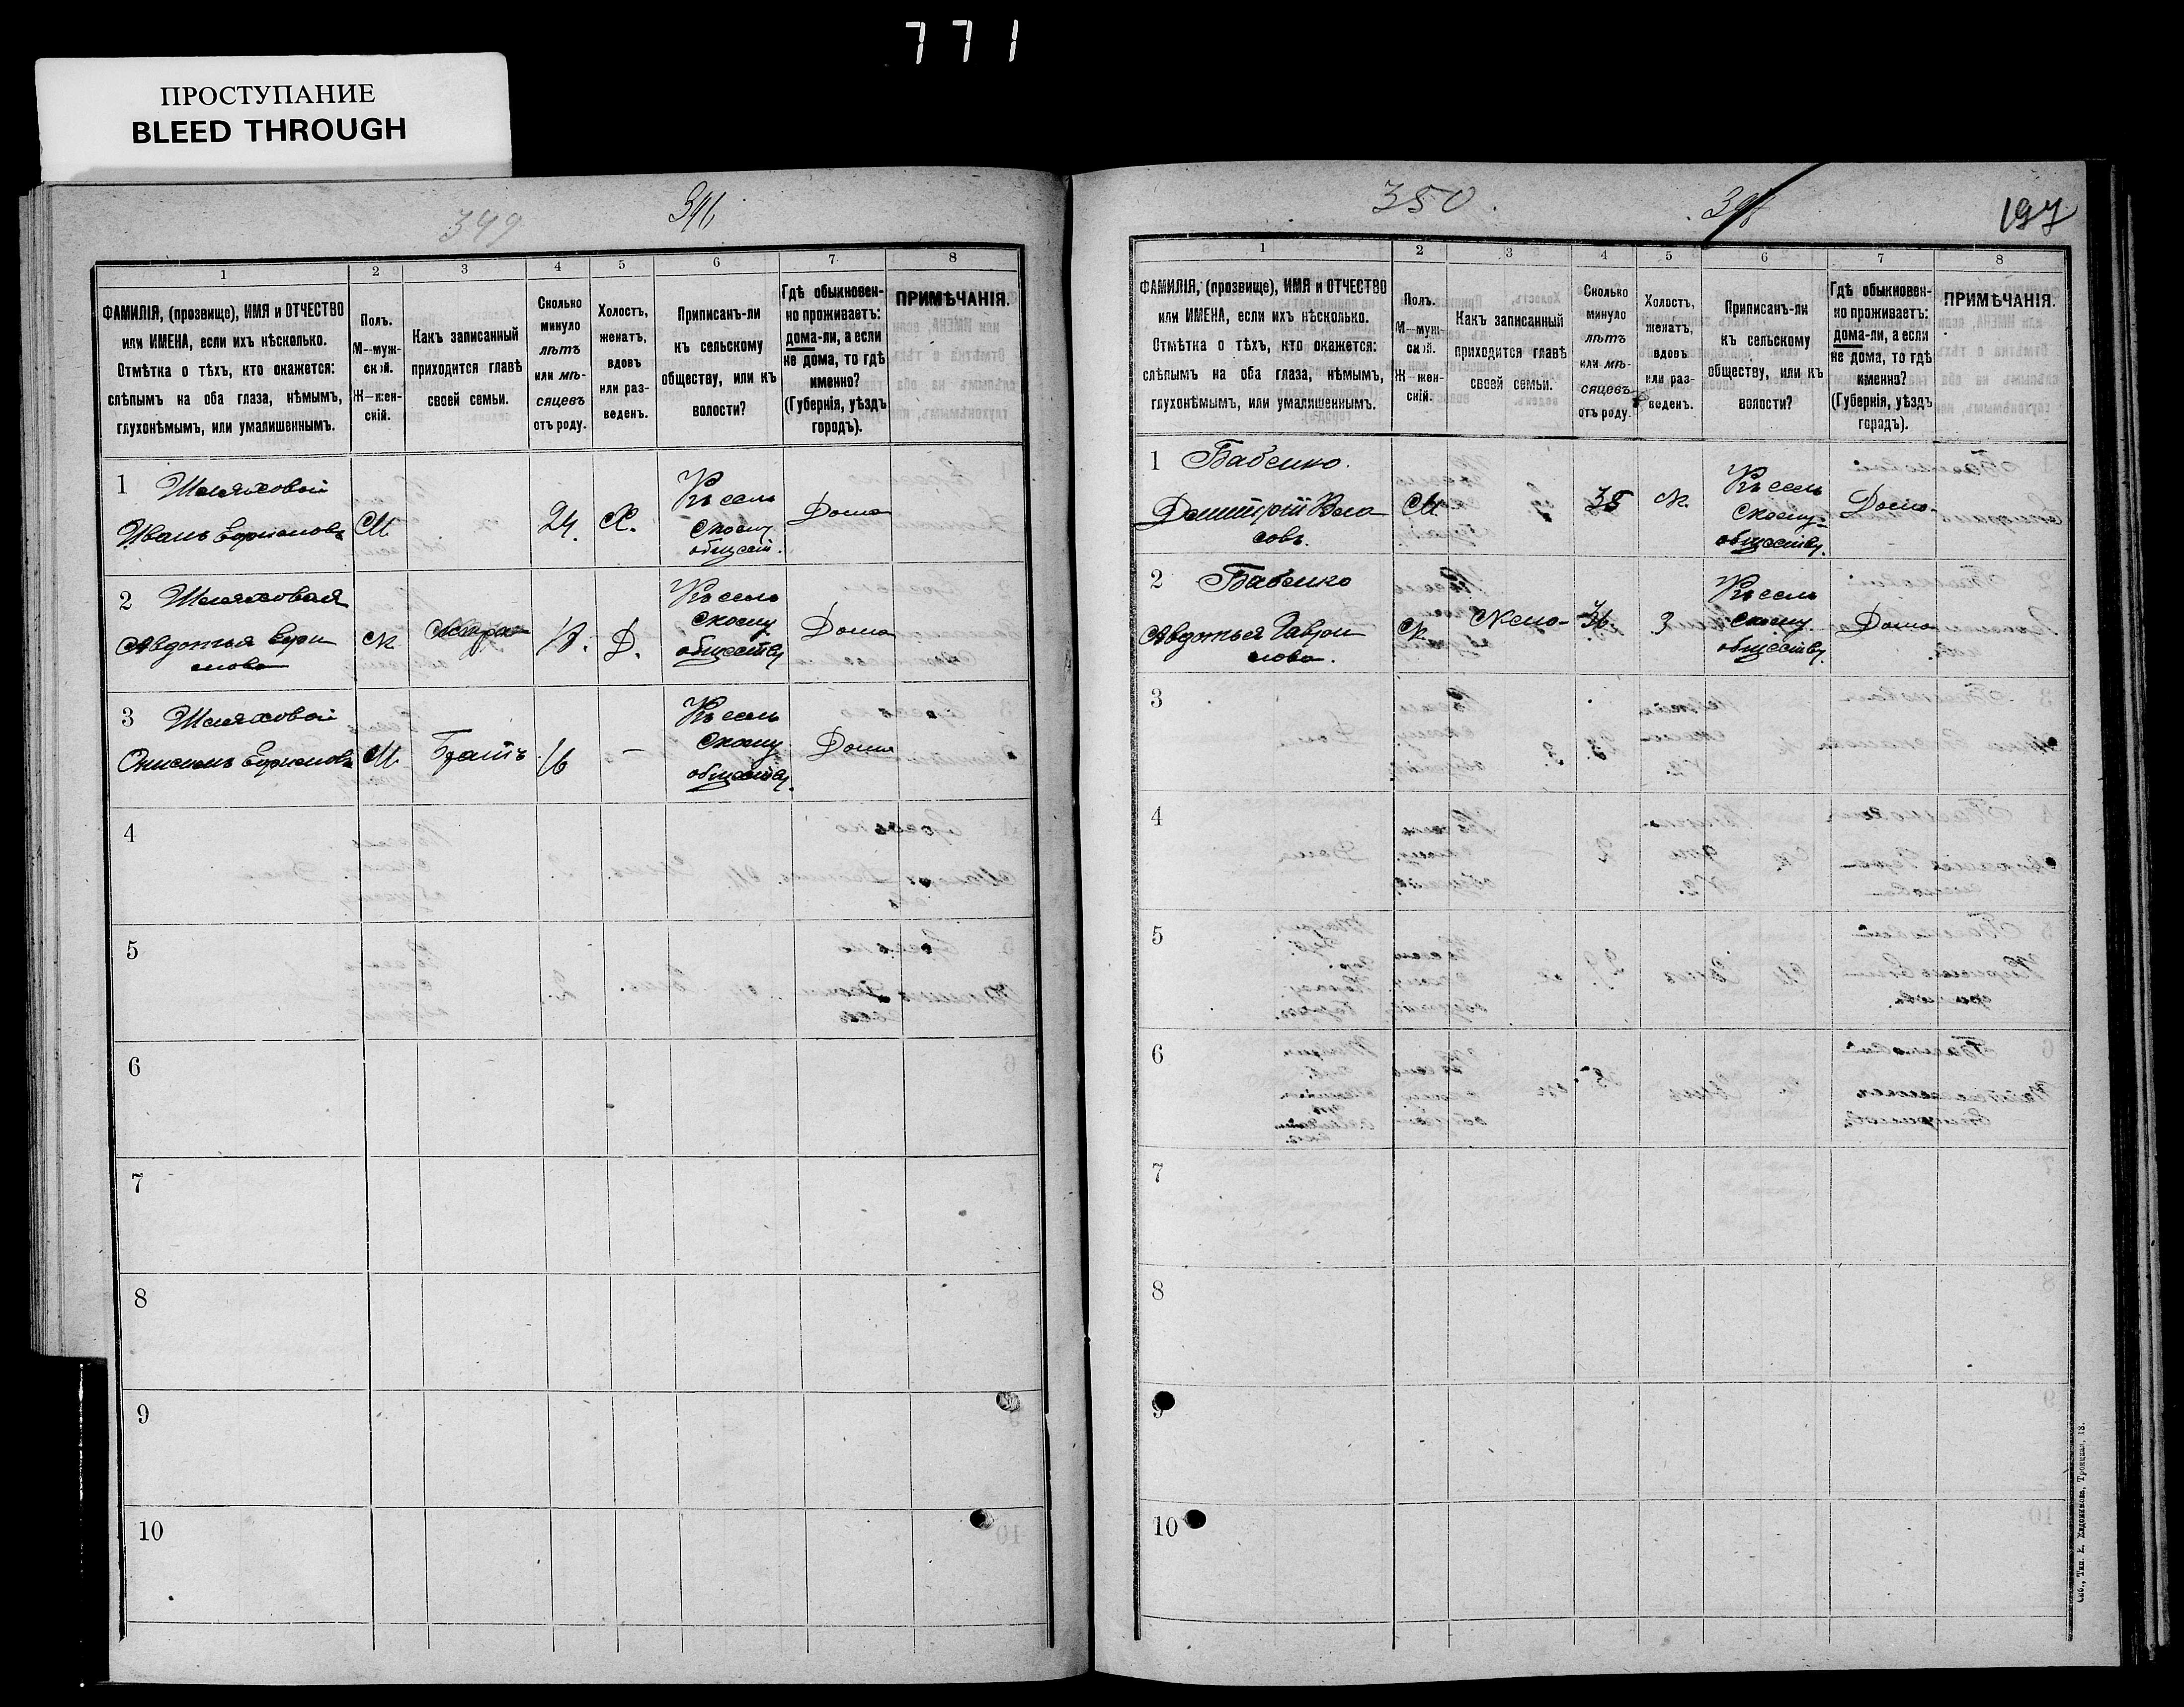 771
ПРОСТУПАНИЕ
BLEED THROUGH
349
1
2
3
4
5
6
7
8
ФАМИЛІЯ, (прозвище), ИМЯ и ОТЧЕСТВО
или ИМЕНА, если ихъ нѣсколько.
Отмѣтка о тѣхъ, кто окажется:
слѣпымъ на оба глаза, нѣмымъ,
глухонѣмымъ, или умалишеннымъ.
Полъ.
М—муж-
ской.
Ж—жен-
скій.
Какъ записанный
приходится главѣ
своей семьи.
Сколько
минуло
лѣтъ
или мѣ-
сяцевъ
отъ роду.
Холостъ,
женатъ,
вдовъ
или раз-
веденъ.
Приписанъ-ли
къ сельскому
обществу, или къ
волости?
Гдѣ обыкновен-
но проживаетъ:
дома-ли, а если
не дома, то гдѣ
именно?
(Губернія, уѣздъ
городъ).
ПРИМѢЧАНІЯ.
1 Шляховой
Иванъ
М.
24.
Х.
Къ сель
скому
общест.
Дома
2 Шляховая
Авдотья
Ж
18.
Д.
Къ сель
скому
обществу
Дома
3 Шляховой
М.
Братъ
16
—
Къ сель
скому
обществу.
Дома
4
5
6
7
8
9
10
350.
197
1
2
3
4
5
6
7
8
ФАМИЛІЯ, (прозвище), ИМЯ и ОТЧЕСТВО
или ИМЕНА, если ихъ нѣсколько.
Отмѣтка о тѣхъ, кто окажется:
слѣпымъ на оба глаза, нѣмымъ,
глухонѣмымъ, или умалишеннымъ.
Полъ.
М—муж-
ской.
Ж—жен-
скій.
Какъ записанный
приходится главѣ
своей семьи.
Сколько
минуло
лѣтъ
или мѣ-
сяцевъ
отъ роду.
Холостъ,
женатъ,
вдовъ
или раз-
веденъ.
Приписанъ-ли
къ сельскому
обществу, или къ
волости?
Гдѣ обыкновен-
но проживаетъ:
дома-ли, а если
не дома, то гдѣ
именно?
(Губернія, уѣздъ
городъ).
ПРИМѢЧАНІЯ.
1 Бабенко.
Дмитрій Вла
совъ.
М
38
Ж.
Къ сель
скому
обществу.
Дома
2 Бабенко
Авдотья Гаври
лова.
Ж.
Жена
36.
З
Къ сель
скому
обществу.
Дома
3
4
5
6
7
8
9
10
Спб., Тип. Е. Евдокимова, Троицкая, 18.